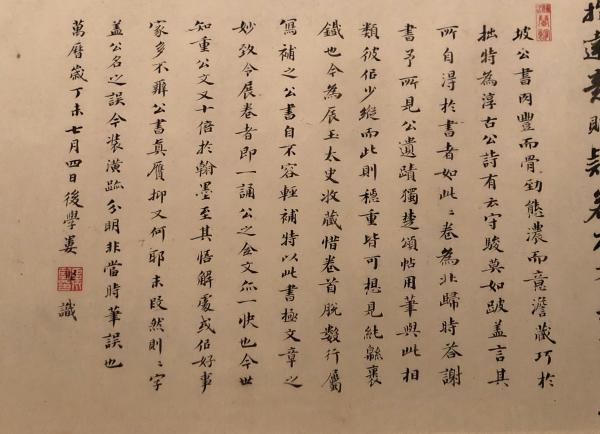 坡公書肉豐而骨勁態濃而意澹藏巧於
拙特為淳古公詩有云守駿莫如跛蓋言其
所自得於書者如此〻卷為北歸時答謝
書予所見公遺蹟獨楚頌帖用筆與此相
類彼佀少縱而此則穩重皆可想見純緜裹
鐵也今為辰玉太史收藏惜卷首脫數行屬
寫補之公書自不容輕補特以此書極文章之
妙致令展卷者即一誦公之全文亦一快也今世
知重公文又十倍於翰墨至其悟解處或佀好事
家多不辨公書真贋抑又何耶末段然則〻字
蓋公名之誤今裝潢跡分明非當時筆誤也
萬曆歲丁未七月四日後學婁堅識